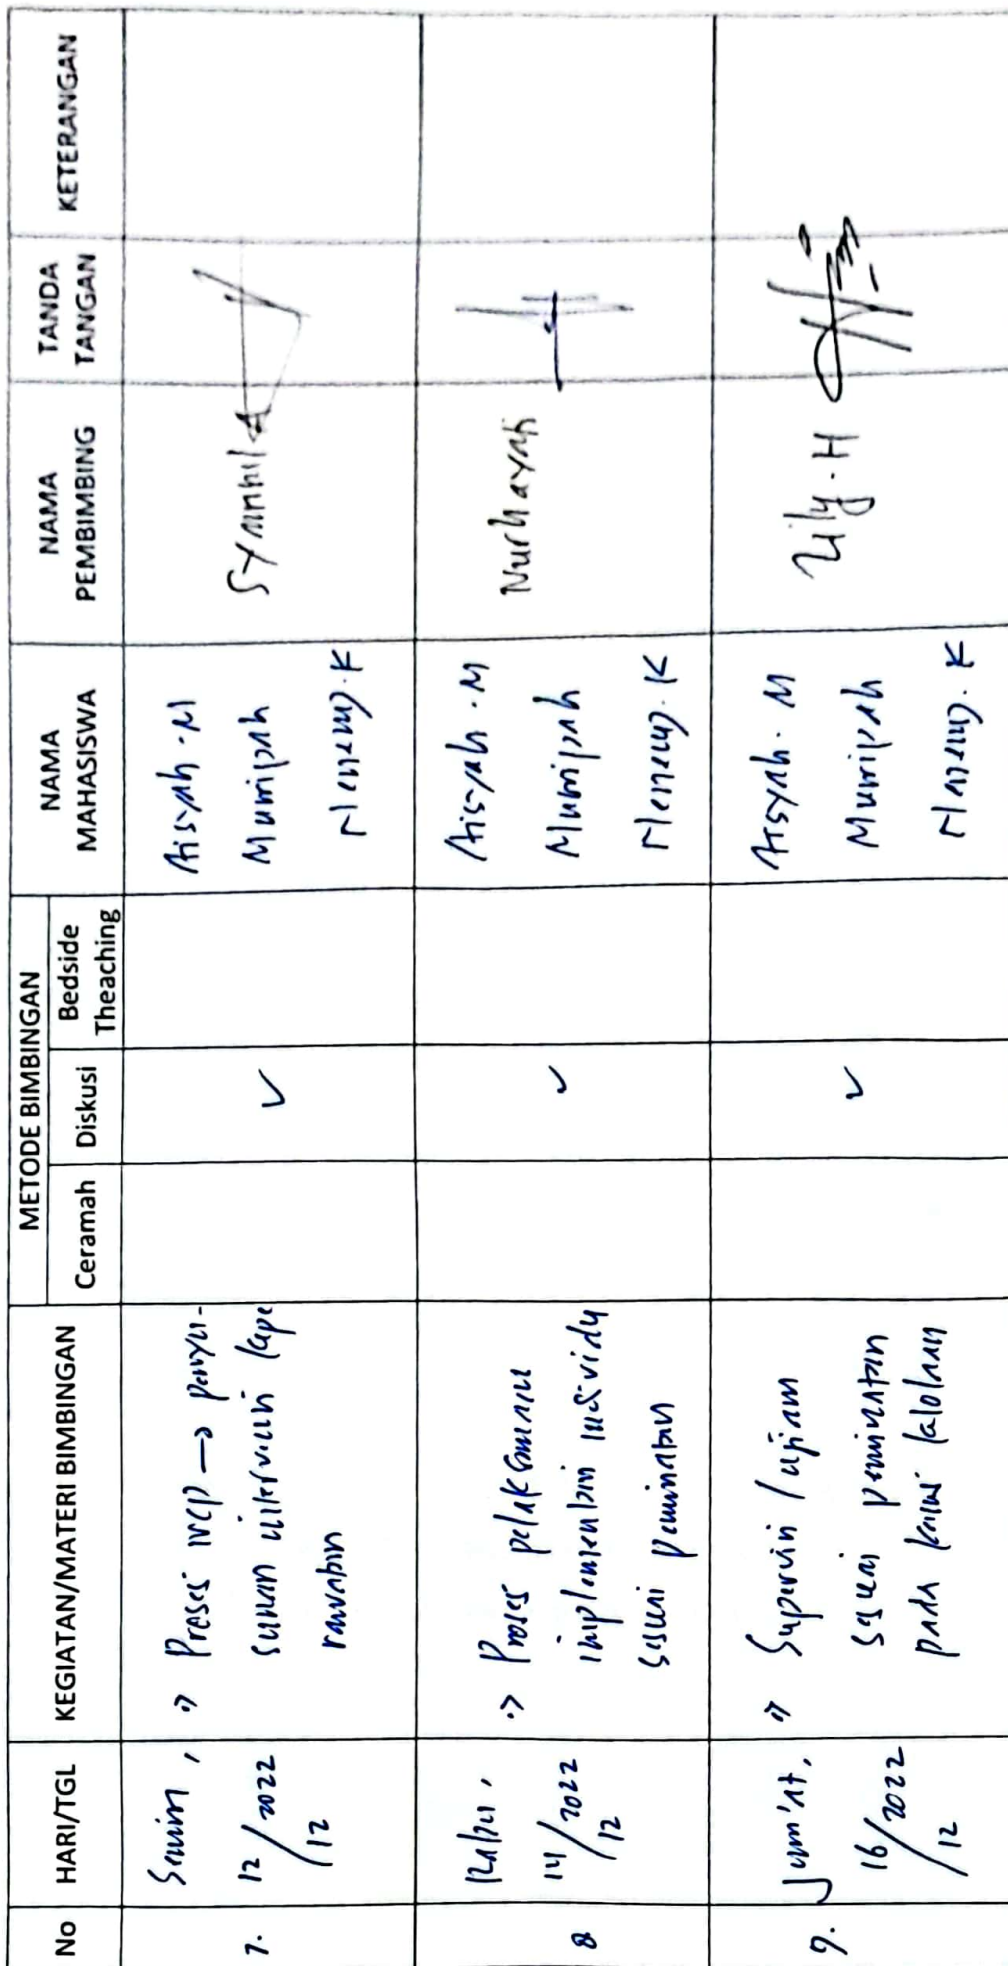 No
HARI/TGL
KEGIATAN/MATERI BIMBINGAN
METODE BIMBINGAN
Ceramah
Diskusi
Bedside
Theaching
NAMA
MAHASISWA
NAMA
PEMBIMBING
TANDA
TANGAN
KETERANGAN
7.
Senin,
12/2022
/12
Proses NCP → penyu-
sunan intervensi kepe
rawatan
✓
Aisyah . M
Munipah
K
8
Rabu,
14/2022
12
Proses pelaksanaan
implementasi individu
sesuai peminatan
✓
Aisyah . M
Munipah
K
Nurhayati
9.
Jum'at,
16/2022
/12
Supervisi / ujian
sesuai peminatan
pada kasus kelolaan
✓
Aisyah . M
Munipah
K
Lily . H